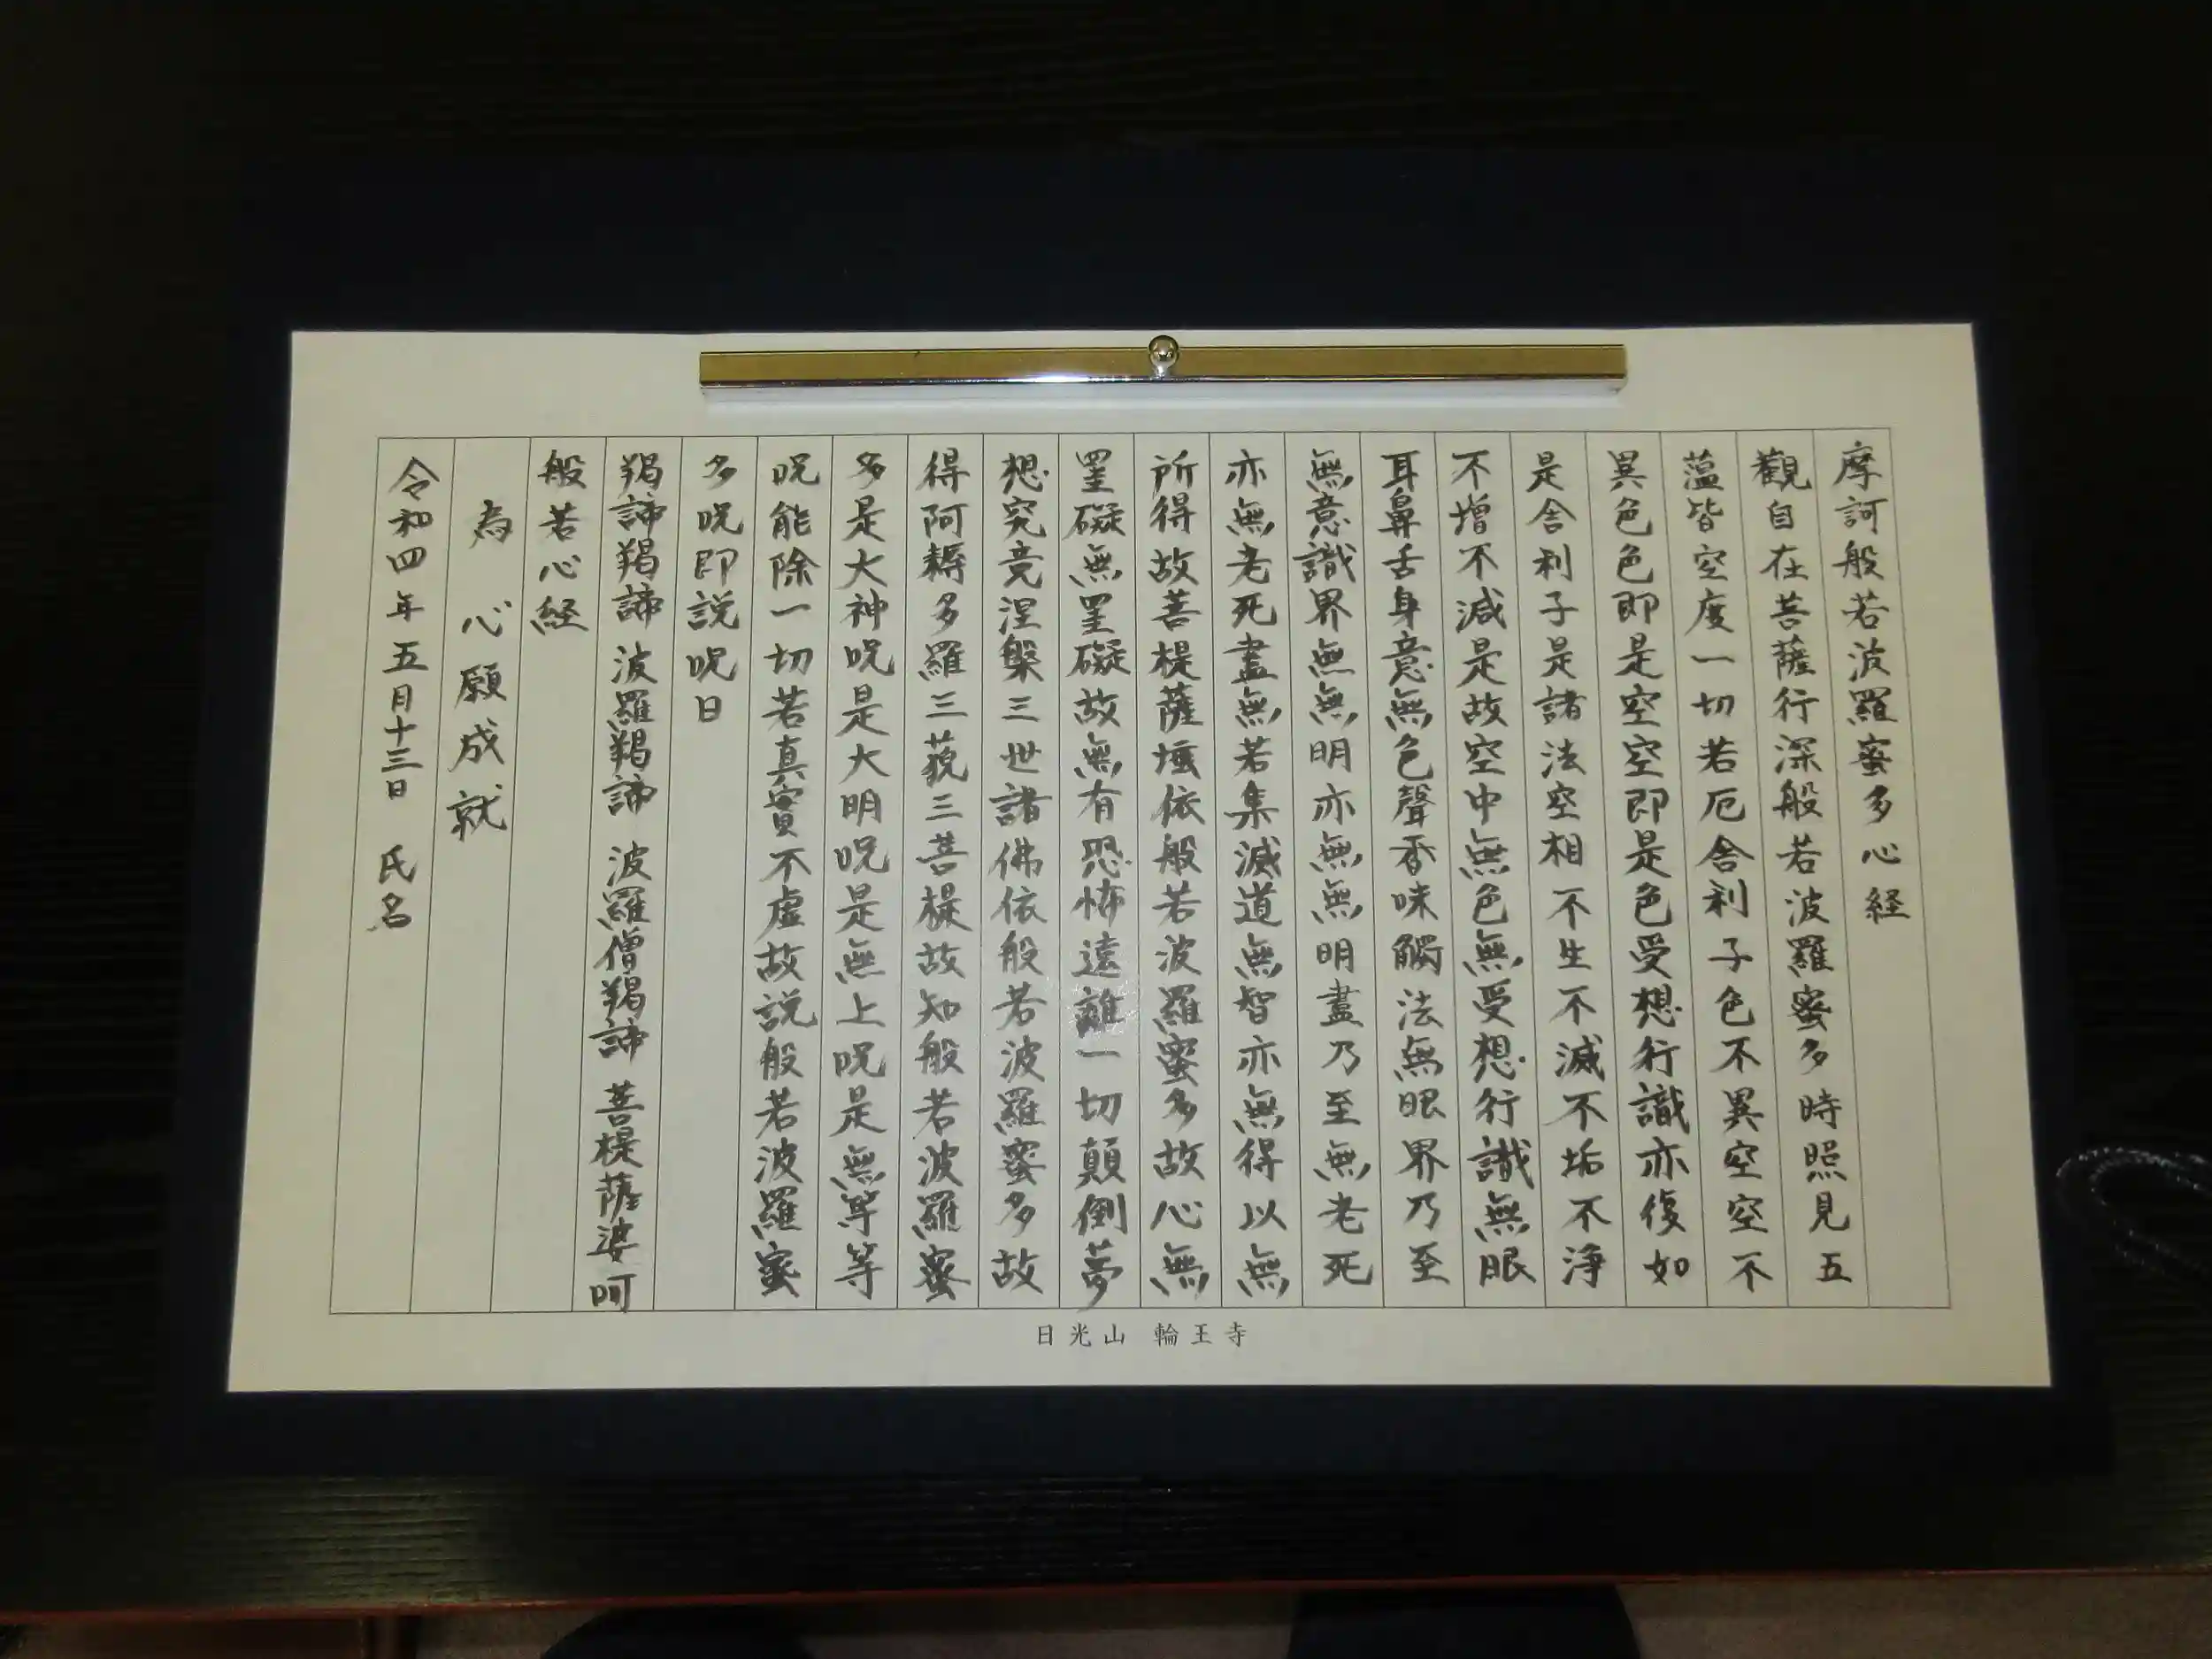 摩訶般若波羅蜜多心経
觀自在菩薩行深般若波羅蜜多時照見五
薀皆空度一切若厄舎利子色不異空空不
異色色即是空空即是色受想行識亦復如
是舎利子是諸法空相不生不滅不垢不浄
不増不減是故空中無色無受想行識無眼
耳鼻舌身意無色聲香味觸法無眼界乃至
無意識界無無明亦無無明盡乃至無老死
亦無老死盡無若集滅道無智亦無得以無
所得故菩提薩埵依般若波羅蜜多故心無
罣礙無罣礙故無有恐怖遠離一切顛倒夢
想究竟涅槃三世諸佛依般若波羅蜜多故
得阿耨多羅三藐三菩提故知般若波羅蜜
多是大神呪是大明呪是無上呪是無等等
呪能除一切若真實不虚故説般若波羅蜜
多呪即説呪曰
羯諦羯諦 波羅羯諦 波羅僧羯諦 菩提薩婆呵
般若心経
為 心願成就
令和四年五月十三日 氏名
日光山 輪王寺